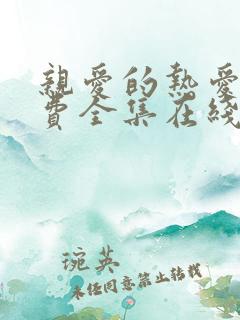 親愛的熱愛
費全集在綫
琬英
未经同意禁止转载